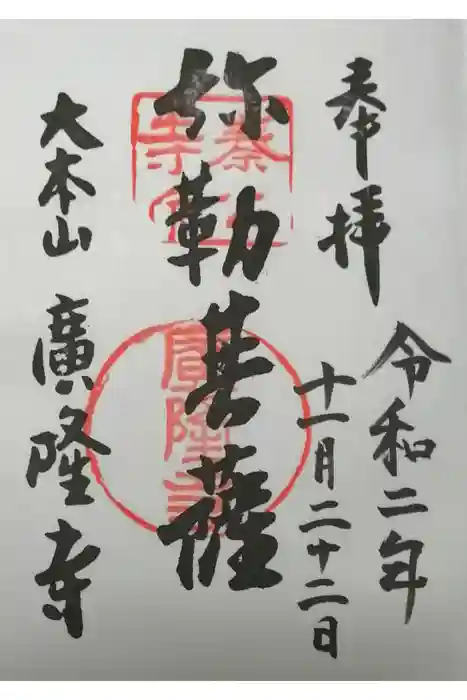 奉拝
令和二年
十一月二十二日
弥勒菩薩
廣隆寺
大本山 廣隆寺